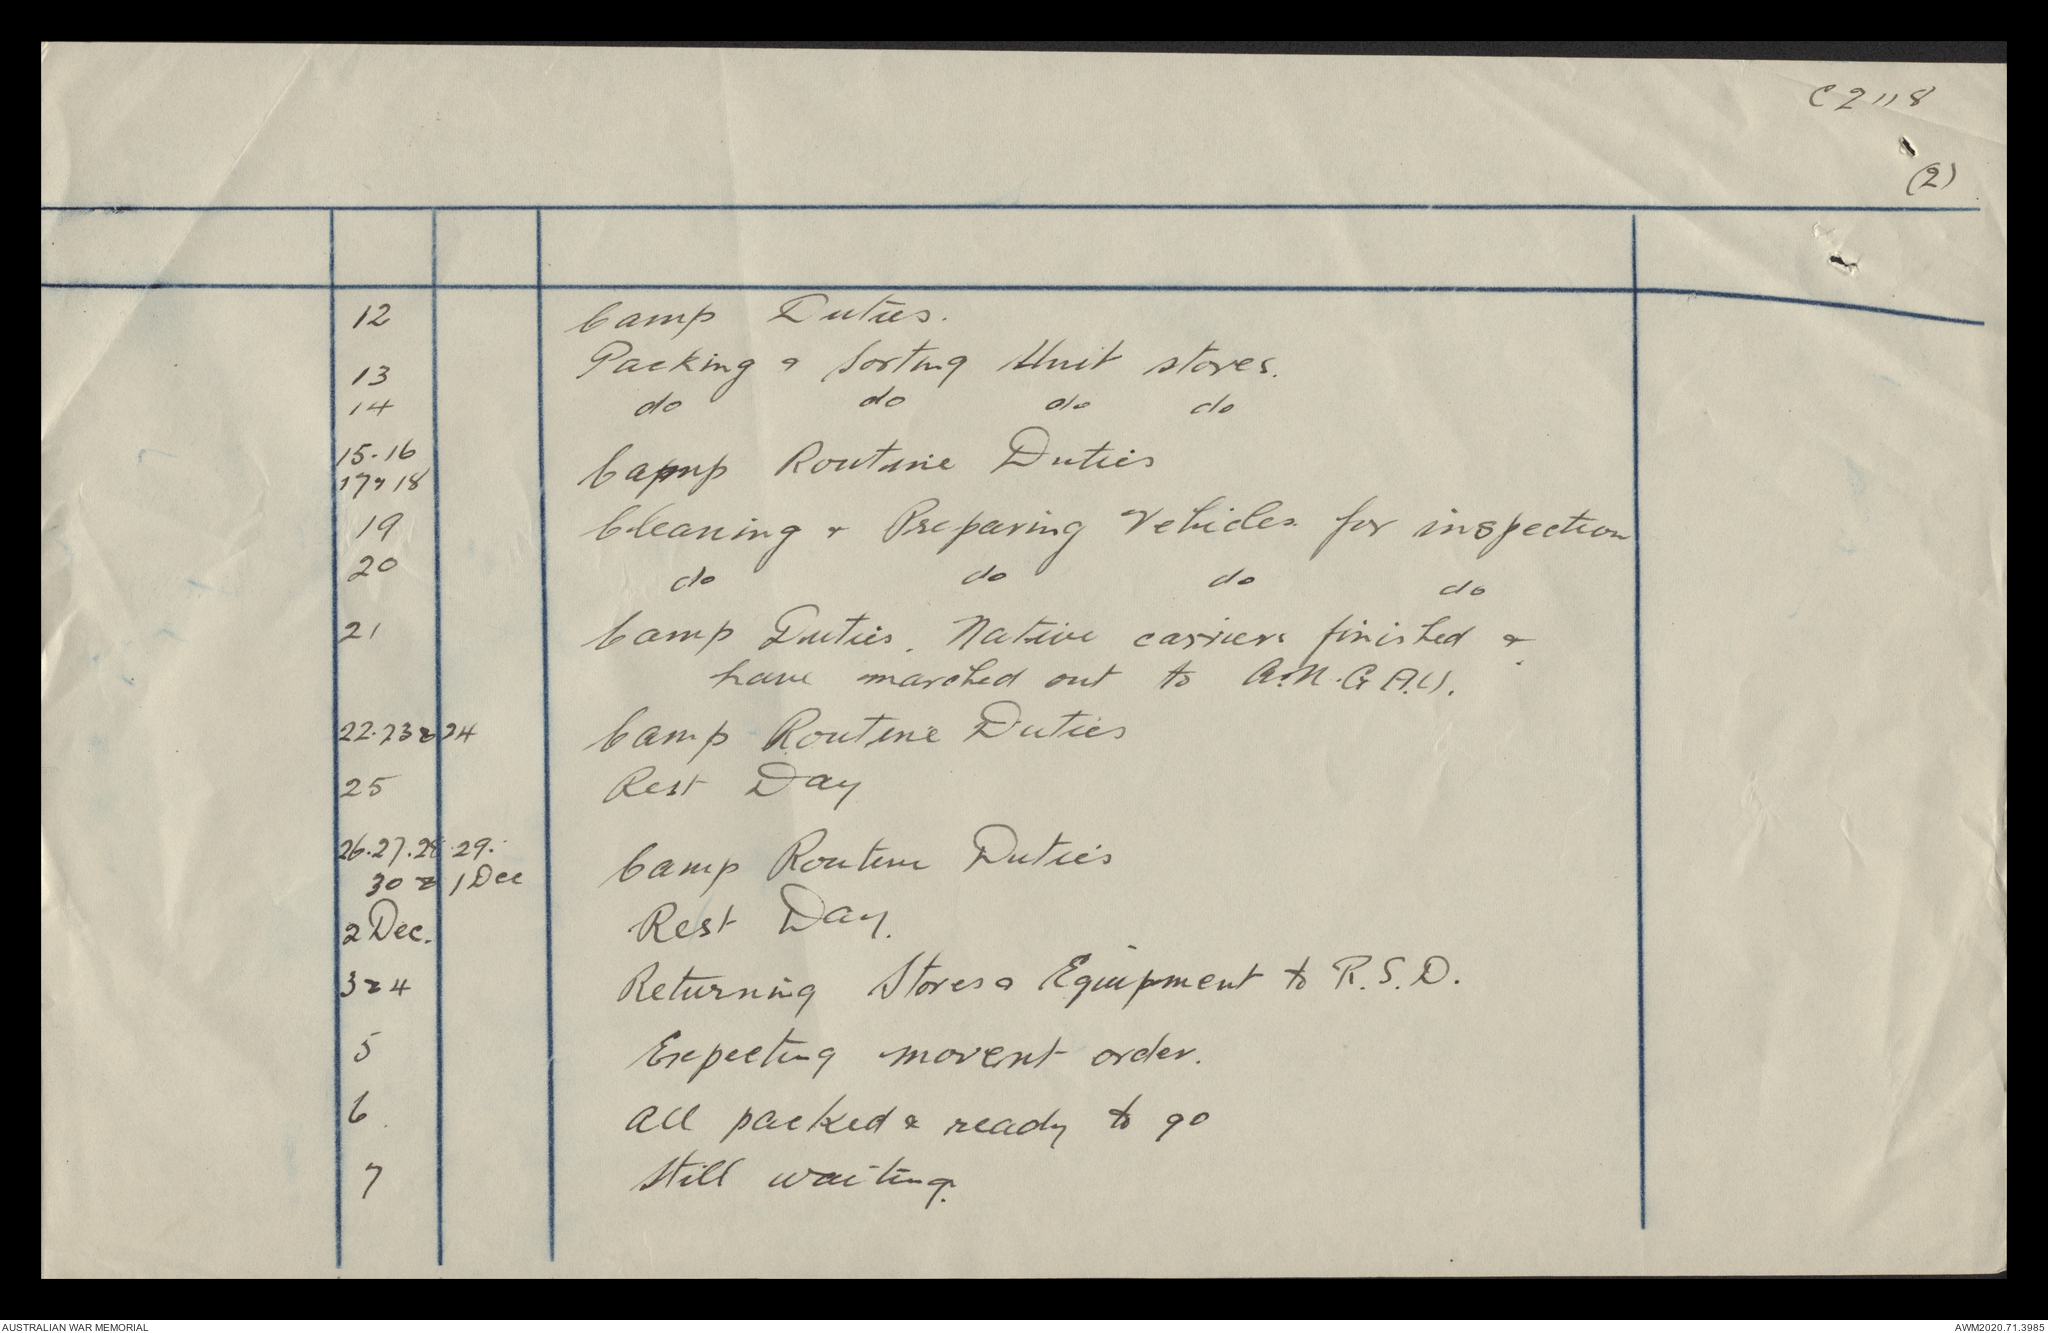 C2118
(2)
12 Camp Duties.
13 Packing & Sorting Unit stores.
14 do do do do
15.16
17 & 18 Camp Routine Duties
19 Cleaning & Preparing Vehicles for inspection
20 do do do do
21 Camp Duties. Native carriers finished &
have marched out to A.N.G.A.U.
22.23 & 24 Camp Routine Duties
25 Rest Day
26.27.28.29.
30 & 1 Dec Camp Routine Duties
2 Dec. Rest Day.
3 & 4 Returning Stores & Equipment to R.S.D.
5 Expecting movent order.
6 All packed & ready to go
7 Still waiting.
AUSTRALIAN WAR MEMORIAL
AWM2020.71.3985